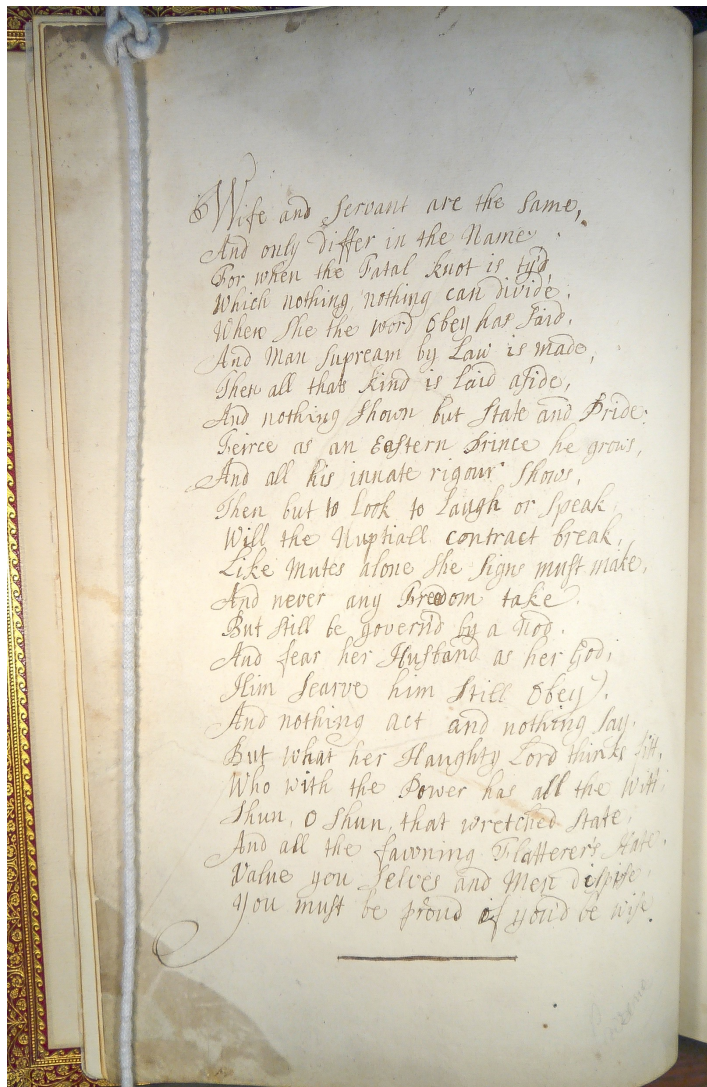 Wife and Servant are the same,
And only Differ in the Name
For when the Fatal knot is ty'd,
Which nothing, nothing can divide,
When She the word Obey has Said,
And Man Supream by Law is made,
Then all thats kind is laid aside,
And nothing Shown but State and Pride:
Feirce as an Eastern Prince he grows,
And all his innate rigour Shows,
Then but to Look to Laugh or Speak
Will the Nuptiall contract break,
Like Mutes alone She Signs must make,
And never any Freedom take.
But Still be govern'd by a Nod,
And fear her Husband as her God,
Him Searve him Still Obey,
And nothing act and nothing Say,
But what her Haughty Lord thinks fitt,
Who with the Power has all the Witt
Shun, O Shun, that wretched State,
And all the fawning Flatterer's Hate,
Value you Selves and Men dispise,
You must be proud if you'd be wise.